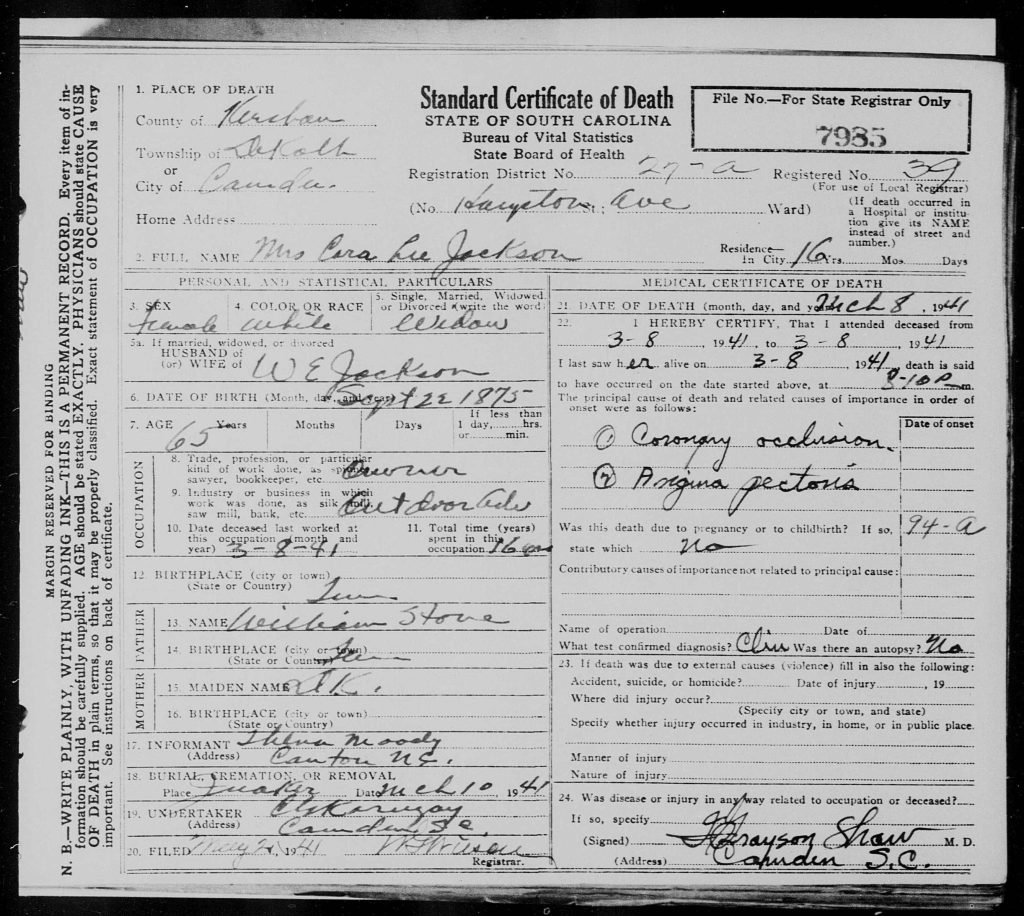 MARGIN RESERVED FOR BINDING
N. B.—WRITE PLAINLY, WITH UNFADING INK—THIS IS A PERMANENT RECORD. Every item of in-
formation should be carefully supplied. AGE should be stated EXACTLY. PHYSICIANS should state CAUSE
OF DEATH in plain terms, so that it may be properly classified. Exact statement of OCCUPATION is very
important. See instructions on back of certificate.
1. PLACE OF DEATH
County of Kershaw
Township of DeKalb
or
City of Camden.
Home Address
Standard Certificate of Death
STATE OF SOUTH CAROLINA
Bureau of Vital Statistics
State Board of Health
File No.—For State Registrar Only
7985
Registration District No. 27-A Registered No. 39
(For use of Local Registrar)
(No. St.; Ave Ward)
(If death occurred in
a Hospital or institu-
tion give its NAME
instead of street and
number.)
2. FULL NAME Mrs Cora Lee Jackson
Residence
In City 16 Yrs. Mos. Days
PERSONAL AND STATISTICAL PARTICULARS
3. SEX
Female
4. COLOR OR RACE
White
5. Single, Married, Widowed,
or Divorced (write the word)
Widow
5a. If married, widowed, or divorced
HUSBAND of
(or) WIFE of W E Jackson
6. DATE OF BIRTH (Month, day, and year) Sept 22 1875
7. AGE
65 Years Months Days
If less than
1 day, hrs.
or min.
OCCUPATION
8. Trade, profession, or particular
kind of work done, as
sawyer, bookkeeper, etc. Owner
9. Industry or business in which
work was done, as silk mill,
saw mill, bank, etc. Outdoor Adv
10. Date deceased last worked at
this occupation (month and
year) 3-8-41
11. Total time (years)
spent in this
occupation 16
12. BIRTHPLACE (city or town)
(State or Country)
Tenn
FATHER
13. NAME William Stone
14. BIRTHPLACE (city or town)
(State or Country) Tenn
MOTHER
15. MAIDEN NAME D.K.
16. BIRTHPLACE (city or town)
(State or Country)
17. INFORMANT Moody
(Address) Canton N.C.
18. BURIAL, CREMATION, OR REMOVAL
Place Quaker Date Mch 10, 1941
19. UNDERTAKER
(Address) Camden S.C.
20. FILED 1941
Registrar.
MEDICAL CERTIFICATE OF DEATH
21. DATE OF DEATH (month, day, and year) Mch 8, 1941
22. I HEREBY CERTIFY, That I attended deceased from
3-8, 1941, to 3-8, 1941
I last saw her alive on 3-8 1941, death is said
to have occurred on the date started above, at 8-10 P m.
The principal cause of death and related causes of importance in order of
onset were as follows:
Date of onset
① Coronary occlusion
② Angina pectoris
Was this death due to pregnancy or to childbirth? If so, 94-A
state which No
Contributory causes of importance not related to principal cause:
Name of operation Date of
What test confirmed diagnosis? Clin Was there an autopsy? No
23. If death was due to external causes (violence) fill in also the following:
Accident, suicide, or homicide? Date of injury , 19
Where did injury occur?
(Specify city or town, and state)
Specify whether injury occurred in industry, in home, or in public place.
Manner of injury
Nature of injury
24. Was disease or injury in any way related to occupation or deceased?
If so, specify
(Signed) Grayson Shaw M. D.
(Address) Camden S.C.